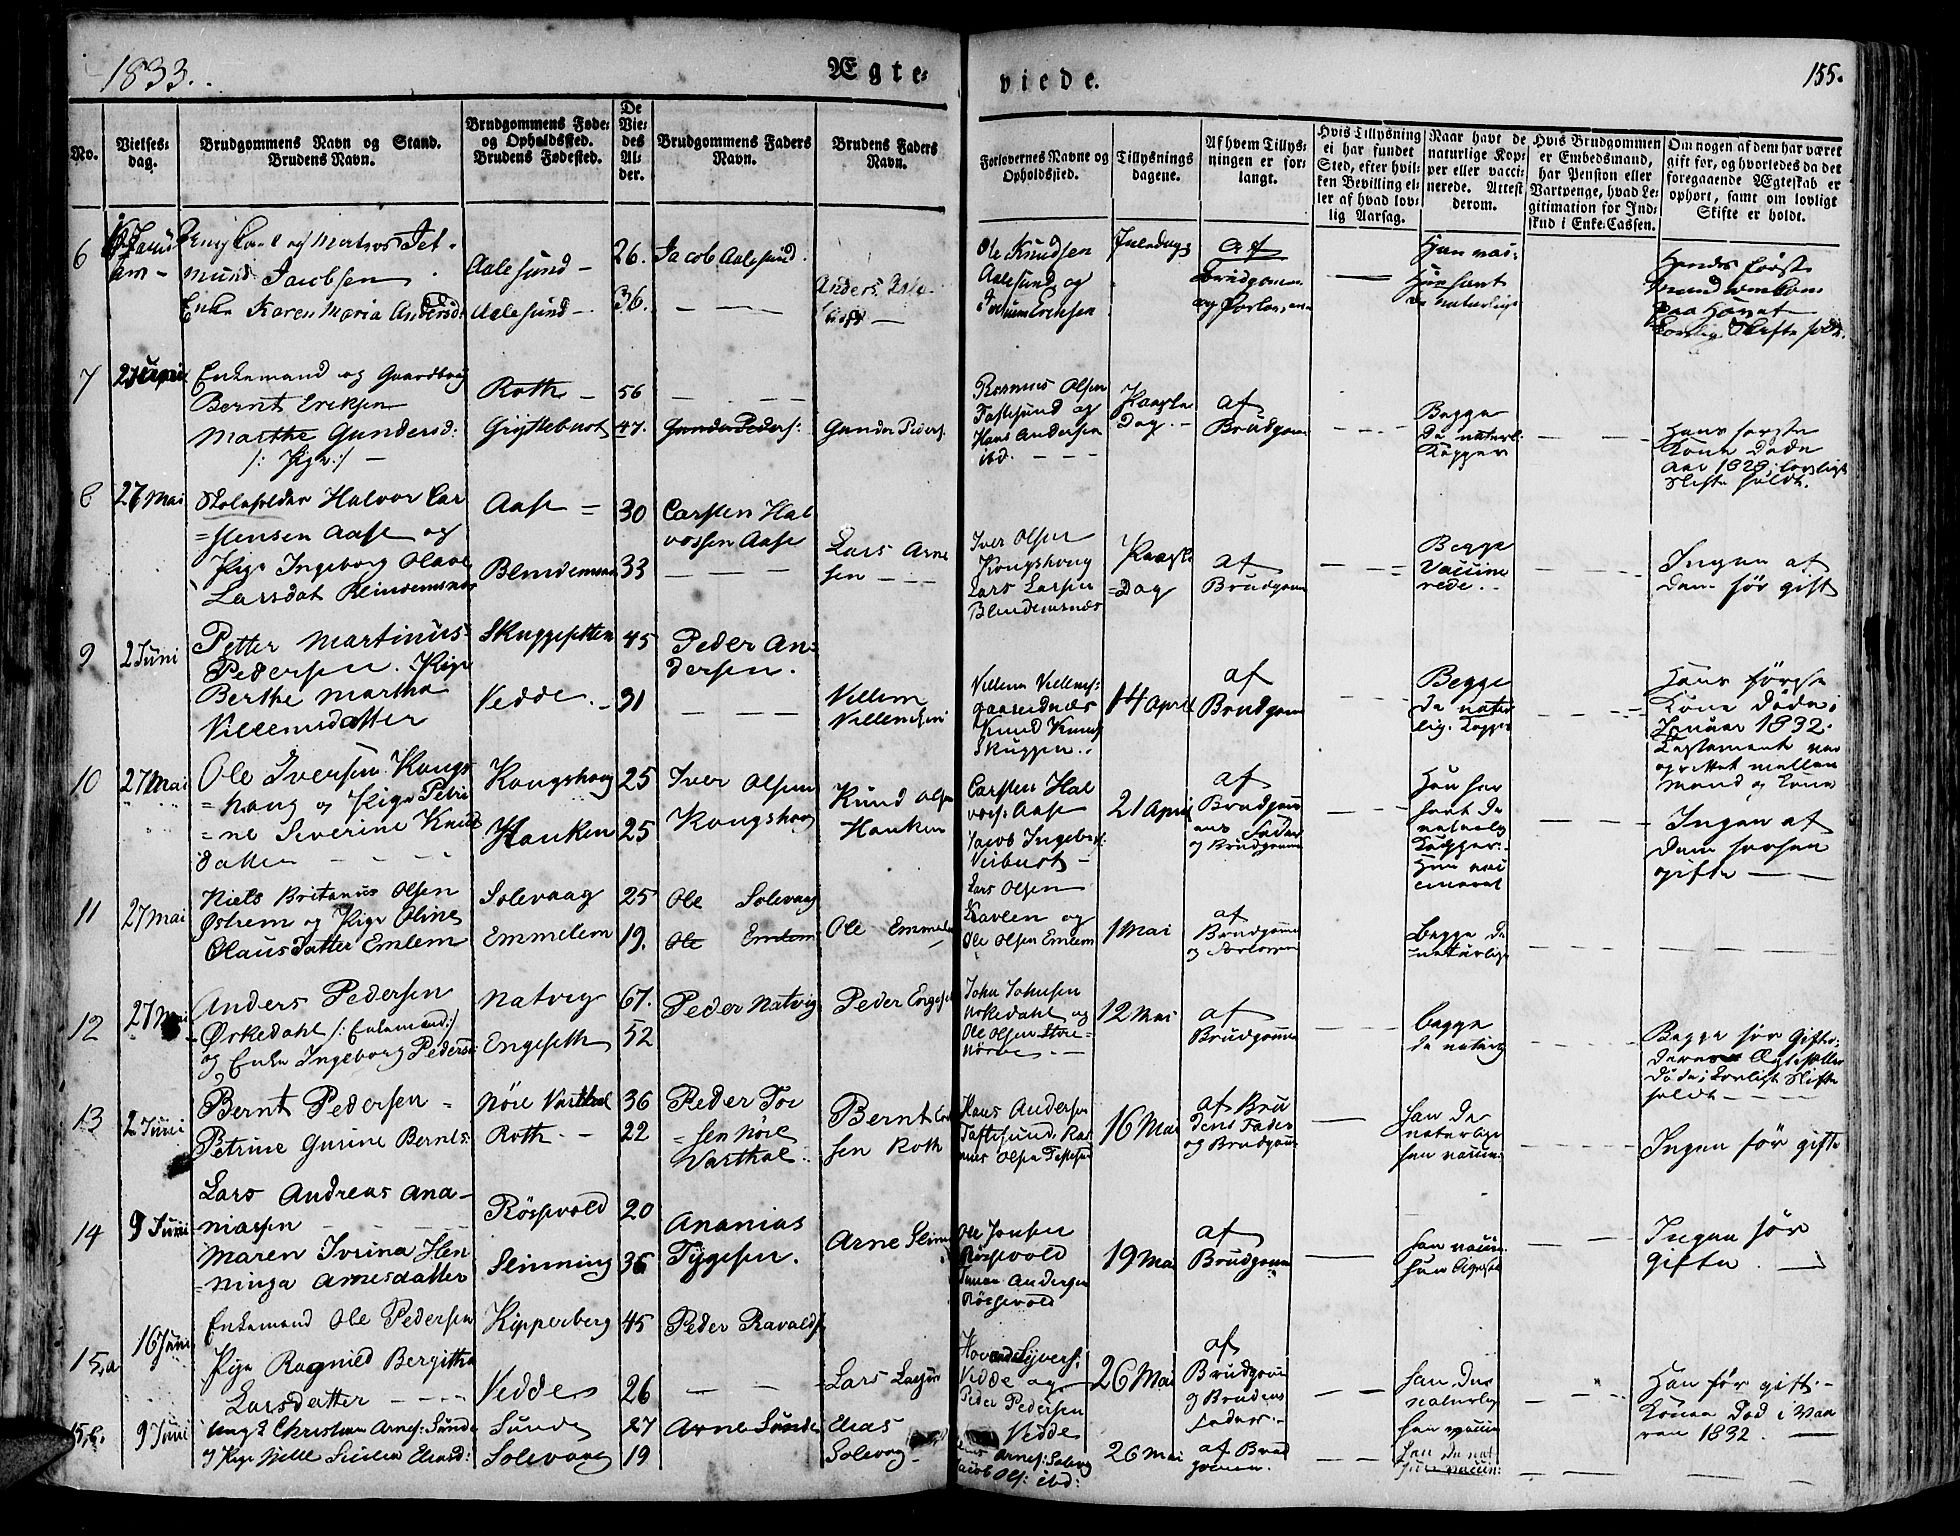 1833.
Ægte-
viede.
155.
No.
Vielses-
dag.
Brudgommens Navn og Stand.
Brudens Navn.
Brudgommens Føde-
og Opholdssted.
Brudens Fødested.
De
Vie-
des
Al-
der.
Brudgommens Faders
Navn.
Brudens Faders
Navn.
Forlovernes Navne og
Opholdssted.
Tillysnings
dagene.
Af hvem Tillys-
ningen er for-
langt.
Hvis Tillysning
ei har fundet
Sted, efter hvil-
ken Bevilling el-
ler af hvad lov-
lig Aarsag.
Naar havt de
naturlige Kop-
per eller vacci-
nerede. Attest
derom.
Hvis Brudgommen
er Embedsmand,
har Pension eller
Vartpenge, hvad Le-
gitimation for Ind-
skud i Enke-Cassen.
Om nogen af dem har været
gift før, og hvorledes da det
foregaaende Ægteskab er
ophørt, samt om lovligt
Skifte er holdt.
6
mund Jacobsen
Enke Karen Maria Andersd:
Aalesund -
Aalesund -
26.
36.
Jacob Aalesund.
Anders
Ole Knudsen
Aalesund og
Juledag
Af
Brudgomen
og Forloverne
Han vac:
Hun havt
de naturlige
Hendes første
Mand omkom
paa Havet
Lovlig Skifte
7
Enkemand og Gaardbrug
Bernt Eriksen
Marthe Gundersd:
/: Pige :/ -
Roth -
56
47.
Gunder Peders:
Gunder Peders:
Rasmus Olsen
Tastesund og
Hans Andersen
ibd.
Paaske
Dag.
af
Brudgom
Begge
de naturl.
Kopper
Hans første
Kone døde
Aar 1828, lovligt
Skifte holdt.
8
27 Mai
Skoleholder Halvor Car
=stensen Aase og
Pige Ingeborg Olave
Larsdat Blindemsnæs
Aase =
Blindemsnæs
30
33
Carsten Hal
vorsen Aase
Lars Arne
sen
Iver Olsen
Kongshoug
Lars Larsen
Blindemsnæs
Paaske
=Dag
af
Brudgom
Begge
Vaccine
rede.
Ingen af
dem før gift
9
2 Juni
Petter Martinus
Pedersen. Pige
Berthe Martha
Villumsdatter
Skuggesetten
Vedde.
45
31
Peder An-
dersen.
Villem
Villemsen
Villem Villems:
Gaaseidnæs
Knud Knuds
Skuggen.
14 April
af
Brudgom
Begge
de natur
lig. Kopper
Hans første
Kone døde i
Januar 1832.
Testament var
oprettet mellem
Mand og Kone
10
27 Mai
Ole Iversen Kongs
=houg og Pige Petri
=ne Severine Knuds
datter
Kongshoug
Hauken
25
25
Iver Olsen
Kongshoug
Knud Olsen
Hauken
Carsten Hal
vors: Aase
Jacob Ingebr:
Veibust -
21 April
af
Brudgom
ens Fader
og Brudgom
Han har
havt de
naturlig
Kopper.
Hun vac
Ingen af
dem forhen
gifte
11
27 Mai
Niels Britanus Olsen
Østrem og Pige Oline
Olausdatter Emlem
Solevaag
Emmelem
25
19.
Ole Solevaag
Ole Emlem
Ole Emmelem
Lars Olsen
og
Ole Olsen Emlem
1 Mai
af
Brudgom
og Forlover
Begge de
naturlige
12
27 Mai
Anders Pedersen
Ørkedahl /: Enkemand :/
og Enke Ingeborg Peders
Natvig
Engeseth
67.
52
Peder Natvig
Peder Engeset
John Johnsen
Ørkedahl og
Ole Olsen Store-
Nørve.
12 Mai
af
Brudgom
begge
de naturlig
Begge før gifte.
deres Ægtefæller
døde; Lovligt Skifte
holdt
13
2 Juni
Bernt Pedersen
Petrine Gurine Bernts
Nöre Vartdal
Roth. -
36
22
Peder Tor
=sen Nöre
Vartdal.
Bernt Erik
sen Roth
Hans Andersen
Tastesund, Ras
mus Olsen Tastesund
16 Mai
af Bru
dens Fader
og Brudgom
Han de
naturlige
Hun vaccin
Ingen før gifte
14
9 Juni
Lars Andreas Ana-
niassen
Maren Ivrina Hen
=ninga Arnesdatter
Rösevold
Slinning
20
36
Ananias
Tygesen.
Arne Slinning
Ole Jonsen
Rösevold
Andersen
Rösevold
19 Mai
af
Brudgom
Han vaccin.
Ingen før
gifte.
15,a
16 Juni
Enkemand Ole Pedersen
Pige Ragnild Bergitha
Larsdatter
Kipperberg
Vedde
45
26
Peder Ravalds
Lars
Vedde og
Peder Pedersen
Vedde
26 Mai
af
Brudgom
og Brudens
Fader.
Han de
naturlig
Hun vaccin
Han før gift.
Konen død i Vaa
ren 1832.
15,b.
9 Juni
Ungk Christian Arnes: Sunde
Sunde
Solevaag
27
19
Arne Sunde
Elias
Solevaag
Arnes: Solevaag
Jacob Ols: ibd:
26 Mai
af Brud
gomen.
Han de nat
Hun vaccin: